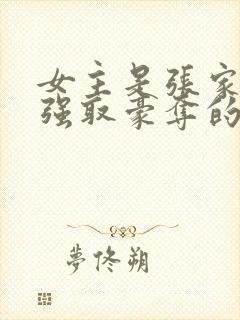 女主是張家
強取豪奪的
夢佟朔